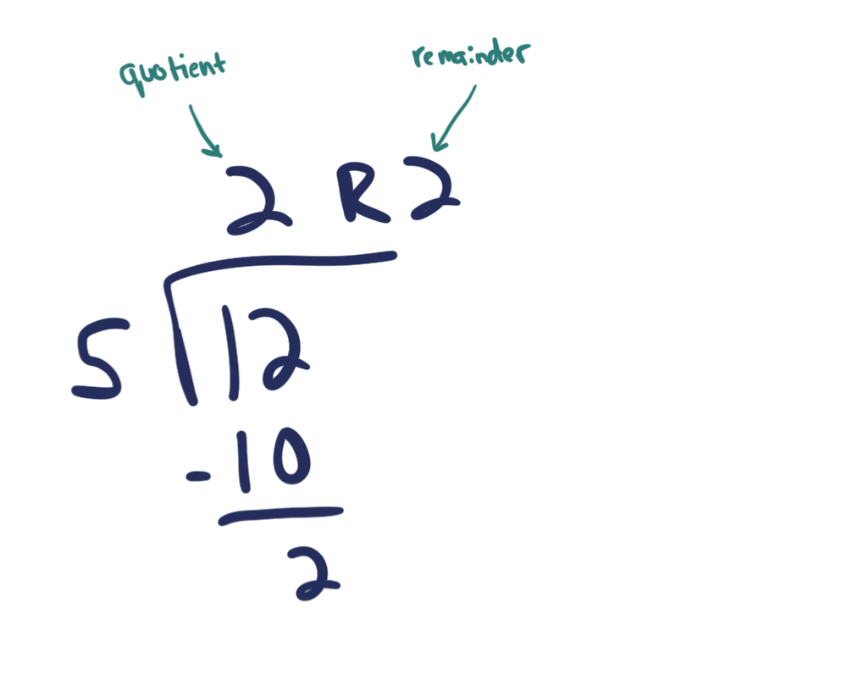 quotient remainder
2 R 2
5 12
-10
2